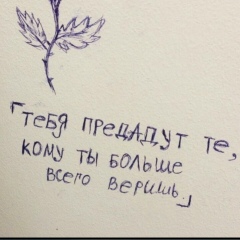 「ТЕБЯ ПРЕДАДУТ ТЕ,
КОМУ ТЫ БОЛЬШЕ
ВСЕГО ВЕРИШЬ.」